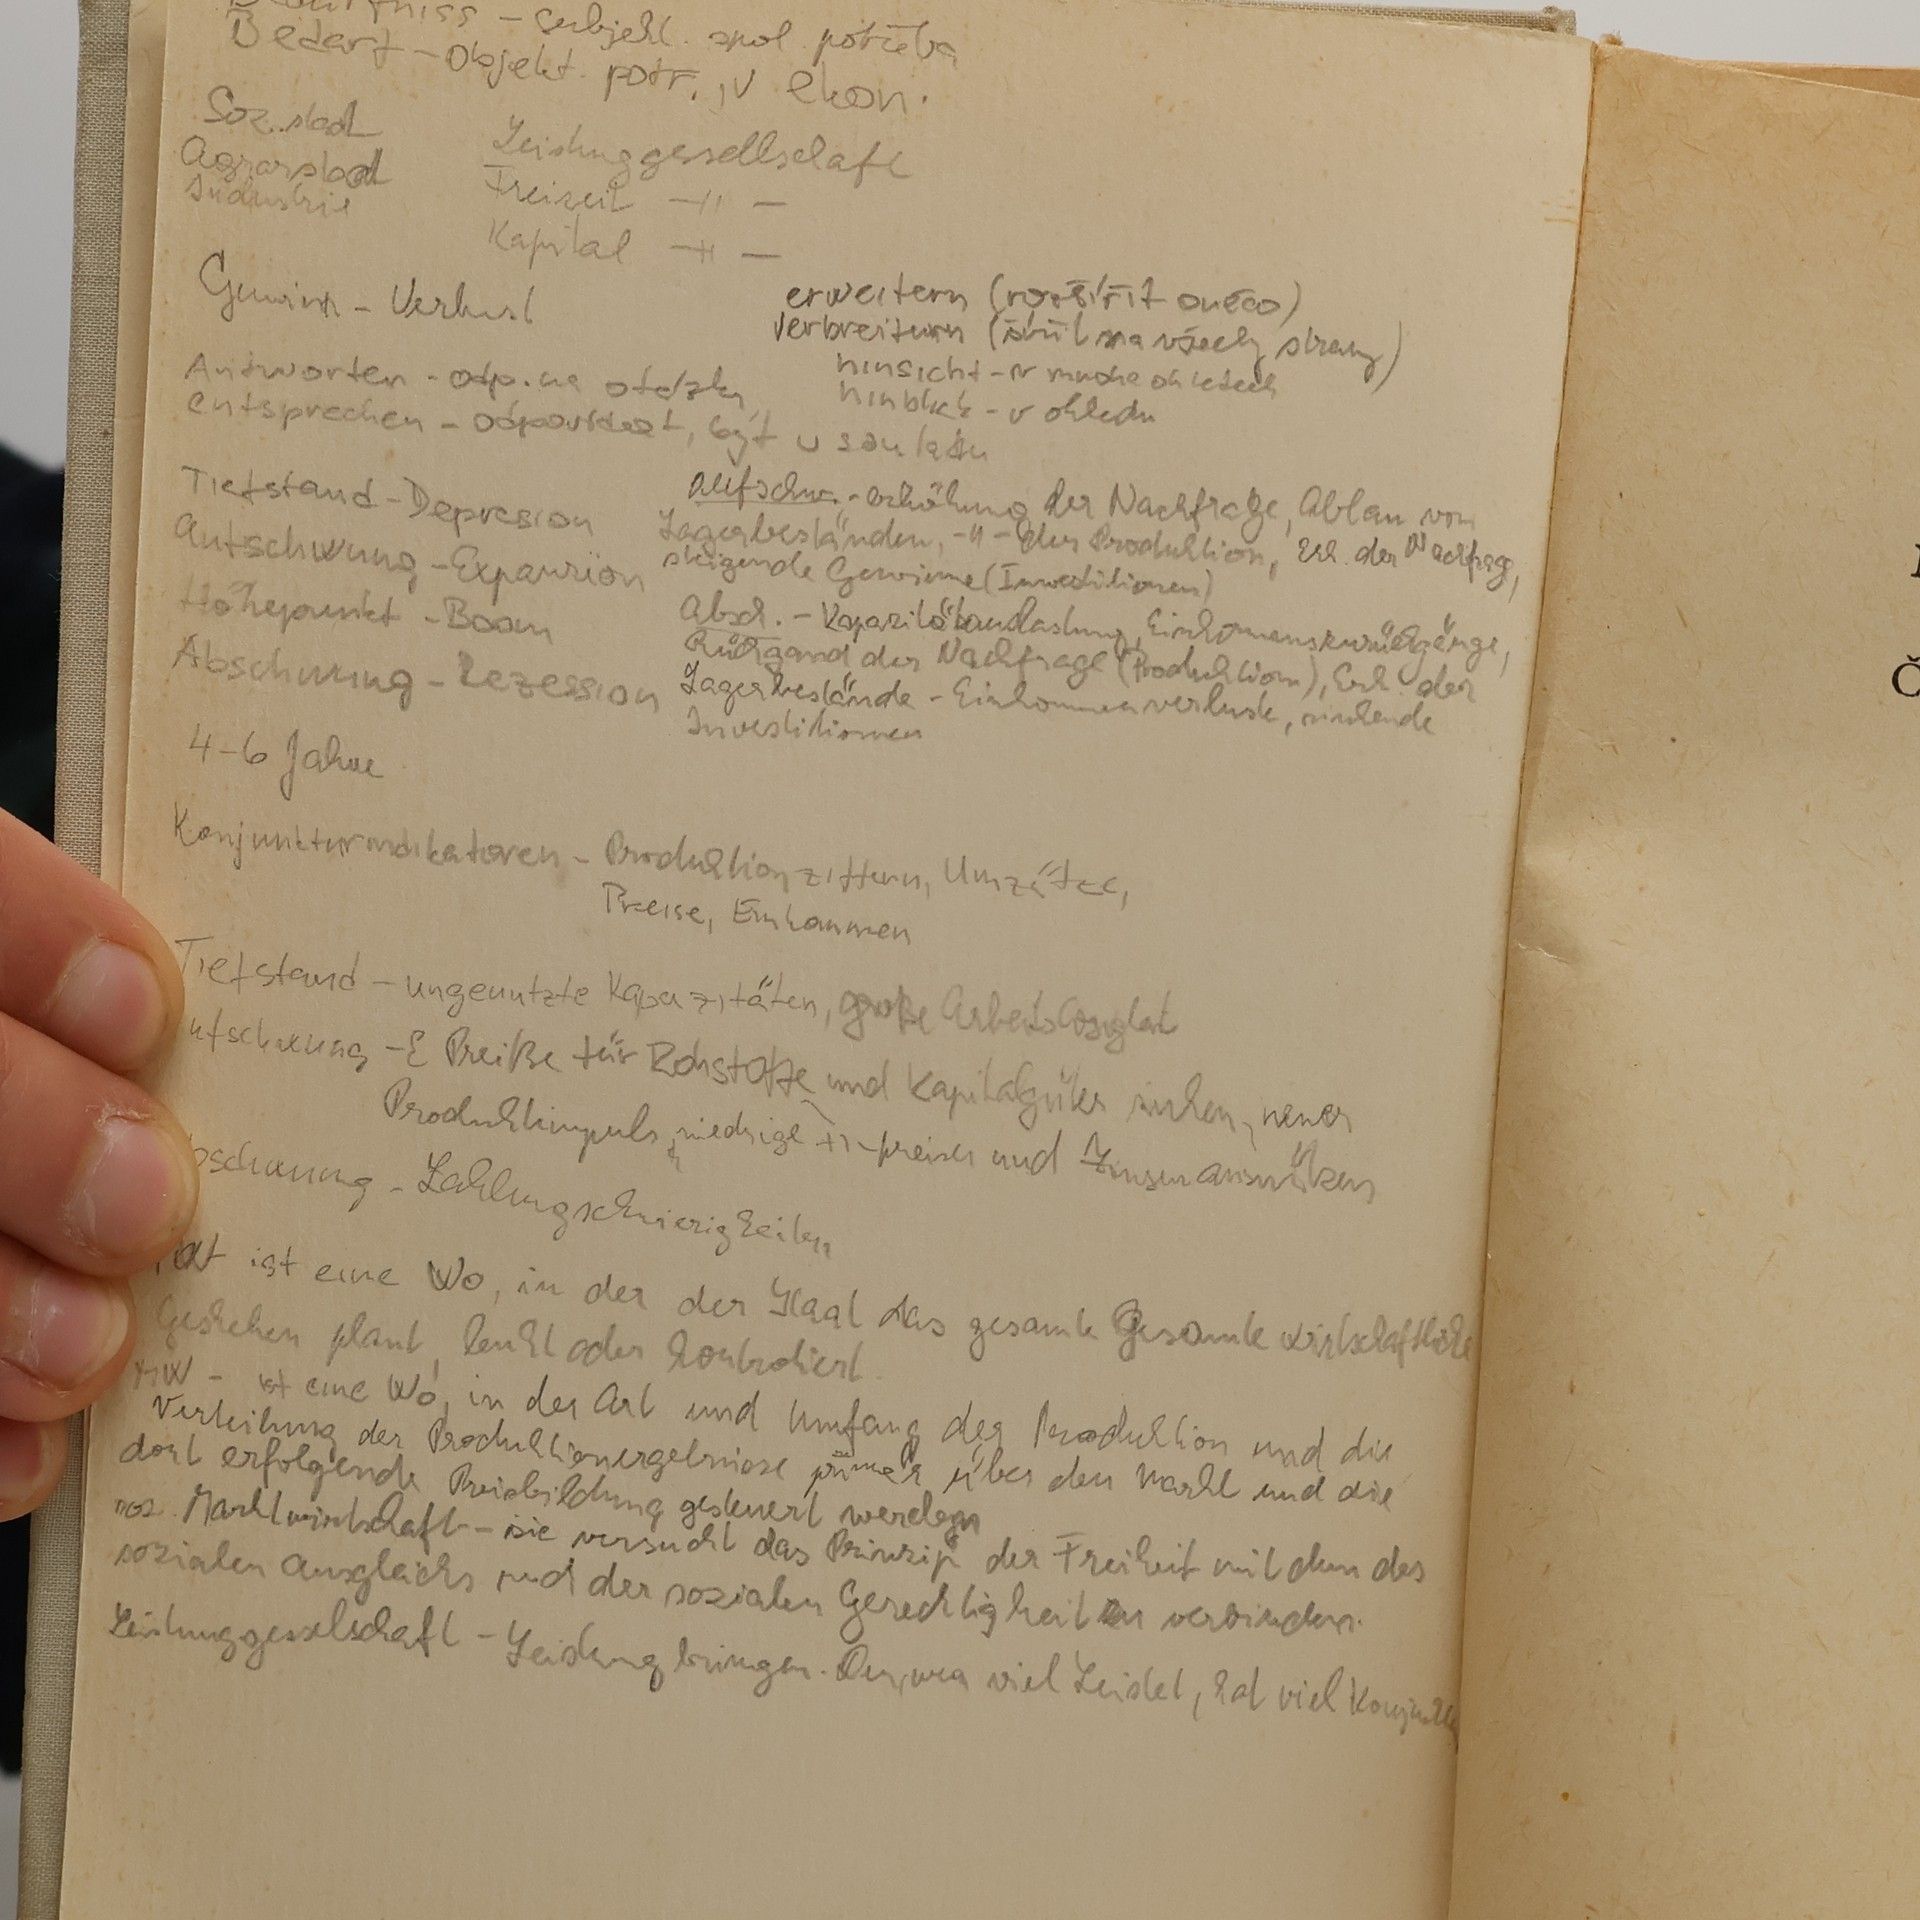 Bedürfniss - subjekt. spol. potřeba
Bedarf - objekt. potř., v ekon.
Soz. stadt
Agrarstadt
Industrie
Leistunggesellschaft
Freizeit -"-
Kapital -"-
Gewinn - Verlust
erweitern (rozšířit o něco)
verbreitern (šířit na všechy strany)
hinsicht - v mnoha ohledech
hinblick - v ohledu
Antworten - odp. na otázku
entsprechen - odpovídat, být v souladu
Tiefstand - Depresion
Aufschwung - Expansion
Höhepunkt - Boom
Abschwung - Rezession
4-6 Jahre
aufschw. - erhöhung der Nachfrage, Abbau von
Lagerbeständen, -"- der Produktion, Erh. der Nachfrag,
steigende Gewinne (Investitionen)
Absch. - Kapazitätauslastung, Einkommensrückgänge,
Rückgand der Nachfrage (Produktion), Erh. der
Lagerbestände - Einkommenverluste, sinkende
Investitionen
Konjunkturindikatoren - Produktionziffern, Umzätze,
Preise, Einkommen
Tiefstand - ungenutzte Kapazitäten, große Arbeitslosiglat
ufschwung - Preiße für Rohstoffe und Kapitalgüter sinken, neuer
Produktimpuls, niedrige -"- preisen und Zinsen ausnützen
bschwung - Zahlungschwierigkeiten
ist eine Wo, in der der Staat das gesamte Gesamte wirtschaftliche
Geschehen plant, lenkt oder kontroliert.
MW - ist eine Wo, in der Art und Umfang der Produktion und die
Verteilung der Produktionergebnisse primär über den Markt und die
dort erfolgende Preisbildung gesteuert werden
soz. Marktwirtschaft - sie versucht das Prinzip der Freiheit mit dem des
sozialen Ausgleichs und der sozialen Gerechtigkeit zu verbinden.
Leistunggesselschaft - Leistung bringen. Der, wer viel Leistet, hat viel
N
Č